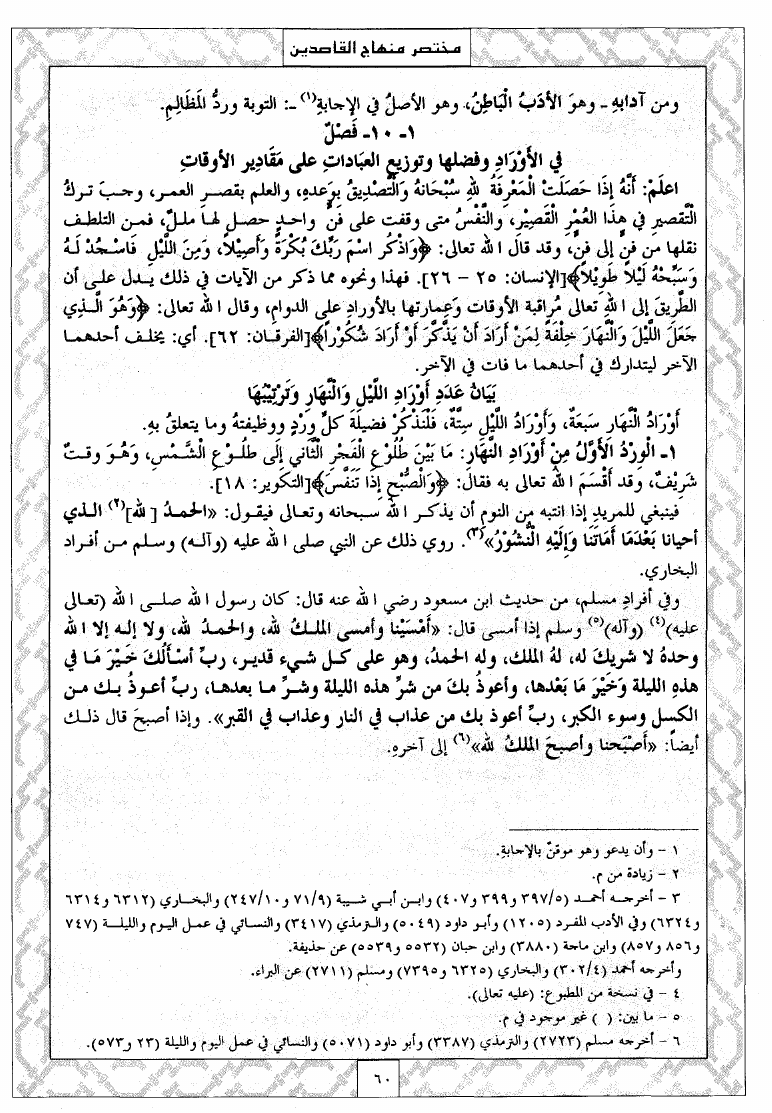 مختصر منهاج القاصدين
ومن آدابهِ ـ وهوَ الأدَبُ الْبَاطِنُ، وهو الأصلُ في الإجابةِ(١) ـ: التوبة وردُّ المَظَالِمِ.
١- ١٠- فَصْلٌ
في الأوْرَادِ وفضلها وتوزيعِ العبَاداتِ على مَقَاديرِ الأوقَاتِ
اعلَمْ: أنَّهُ إذَا حَصَلَتْ الْمَعْرِفَةُ للهِ سُبْحَانَهُ وَالتَّصْدِيقُ بِوَعدِهِ، والعلم بقصرِ العمرِ، وجبَ تركُ
الْتَّقصيرِ في هذا العُمْرِ الْقَصِيْرِ، والنَّفْسُ متى وقفت على فنٍّ واحدٍ حصل لها مللٌ، فمن التلطف
نقلها من فنٍ إلى فنٍ، وقد قال الله تعالى: ﴿وَاذْكُر اسْمَ رَبِّكَ بُكْرَةً وَأَصِيْلاً، وَمِنَ اللَّيْلِ فَاسْجُدْ لَهُ
وَسَبِّحْهُ لَيْلاً طَوِيْلاً﴾[الإنسان: ٢٥ – ٢٦]. فهذا ونحوه مما ذكر من الآيات في ذلك يدل على أن
الطَّريقَ إلى اللهِ تعالى مُراقبة الأوقات وَعِمارتها بالأورادِ على الدوامِ، وقال الله تعالى: ﴿وَهُوَ الَّذِي
جَعَلَ اللَّيْلَ وَالنَّهَارَ خِلْفَةً لِمَنْ أَرَادَ أَنْ يَذَّكَّرَ أَوْ أَرَادَ شُكُوْراً﴾[الفرقان: ٦٢]. أي: يخلف أحدهما
الآخر ليتدارك في أحدهما ما فات في الآخر.
بَيَانُ عَدَدِ أَوْرَادِ اللَّيْلِ وَالنَّهَارِ وَتَرْتِيْبُهَا
أوْرَادُ النَّهَارِ سَبَعَةٌ، وَأوْرَادُ اللَّيْلِ سِتَّةٌ، فَلْنَذْكُرْ فضيلَة كلِّ وِرْدٍ ووظيفتهُ وما يتعلقُ بهِ.
١- الْوِرْدُ الأَوَّلُ مِنْ أوْرَادِ النَّهَارِ: مَا بَيْنَ طُلُوْعِ الْفَجْرِ الْثَّانِي إلَى طُلُوْعِ الْشَّمْسِ، وَهُوَ وقتٌ
شَرِيْفٌ، وقد أقْسَمَ الله تعالى به فقال: ﴿وَالْصُّبْحِ إذَا تَنَفَّسَ﴾[التكوير: ١٨].
فينبغي للمريدِ إذا انتبه من النومِ أن يذكر الله سبحانه وتعالى فيقول: «الحمدُ [لله](٢) الذي
أحيانا بَعْدَمَا أمَاتَنا وَإلَيْهِ النُّشُوْرُ»(٣). روي ذلك عن النبي صلى الله عليه (وآله) وسلم من أفراد
البخاري.
وفي أفرادِ مسلم، من حديث ابن مسعود رضي الله عنه قال: كان رسول الله صلى الله (تعالى
عليه)(٤) (وآله)(٥) وسلم إذا أمسى قال: «أَمْسَيْنا وأمسى الملكُ لله، والحمدُ لله، ولا إله إلا الله
وحدهُ لا شريكَ له، لهُ الملك، وله الحمدُ، وهو على كل شيء قدير، ربِّ أسْأَلُكَ خَيْرَ مَا في
هذهِ الليلة وَخَيْرَ مَا بَعْدها، وأعوذُ بكَ من شرِّ هذه الليلة وشرِّ ما بعدها، ربِّ أعوذُ بك من
الكسل وسوء الكبر، ربِّ أعوذ بك من عذاب في النار وعذاب في القبر». وإذا أصبحَ قال ذلك
أيضاً: «أَصْبَحنا وأصبحَ الملكُ لله»(٦) إلى آخرهِ.
١ – وأن يدعو وهو موقنٌ بالإجابةِ.
٢ – زيادة من م.
٣ – أخرجه أحمد (٣٩٧/٥ و٣٩٩ و٤٠٧) وابن أبي شيبة (٧١/٩ و٢٤٧/١٠) والبخاري (٦٣١٢ و٦٣١٤
و٦٣٢٤) وفي الأدب المفرد (١٢٠٥) وأبو داود (٥٠٤٩) والترمذي (٣٤١٧) والنسائي في عمل اليوم والليلة (٧٤٧
و٨٥٦ و٨٥٧) وابن ماجة (٣٨٨٠) وابن حبان (٥٥٣٢ و٥٥٣٩) عن حذيفة.
وأخرجه أحمد (٣٠٢/٤) والبخاري (٦٣٢٥ و٧٣٩٥) ومسلم (٢٧١١) عن البراء.
٤ – في نسخة من المطبوع: (عليه تعالى).
٥ – ما بين: ( ) غير موجود في م.
٦ – أخرجه مسلم (٢٧٢٣) والترمذي (٣٣٨٧) وأبو داود (٥٠٧١) والنسائي في عمل اليوم والليلة (٢٣ و٥٧٣).
٦٠